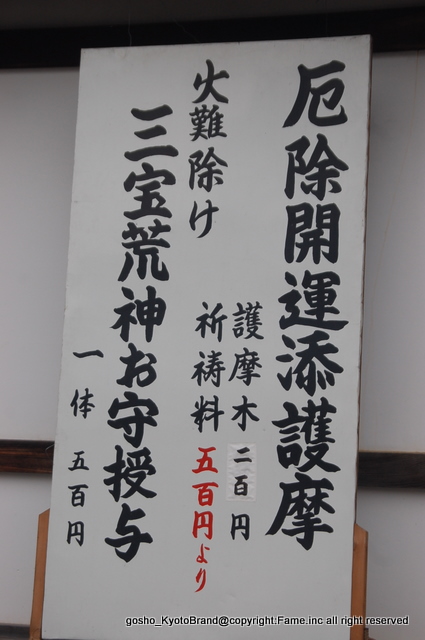 厄除開運添護摩
護摩木 二百円
祈祷料 五百円より
火難除け
三宝荒神お守授与
一体 五百円
gosho_KyotoBrand@copyright.Fame.inc all right reserved